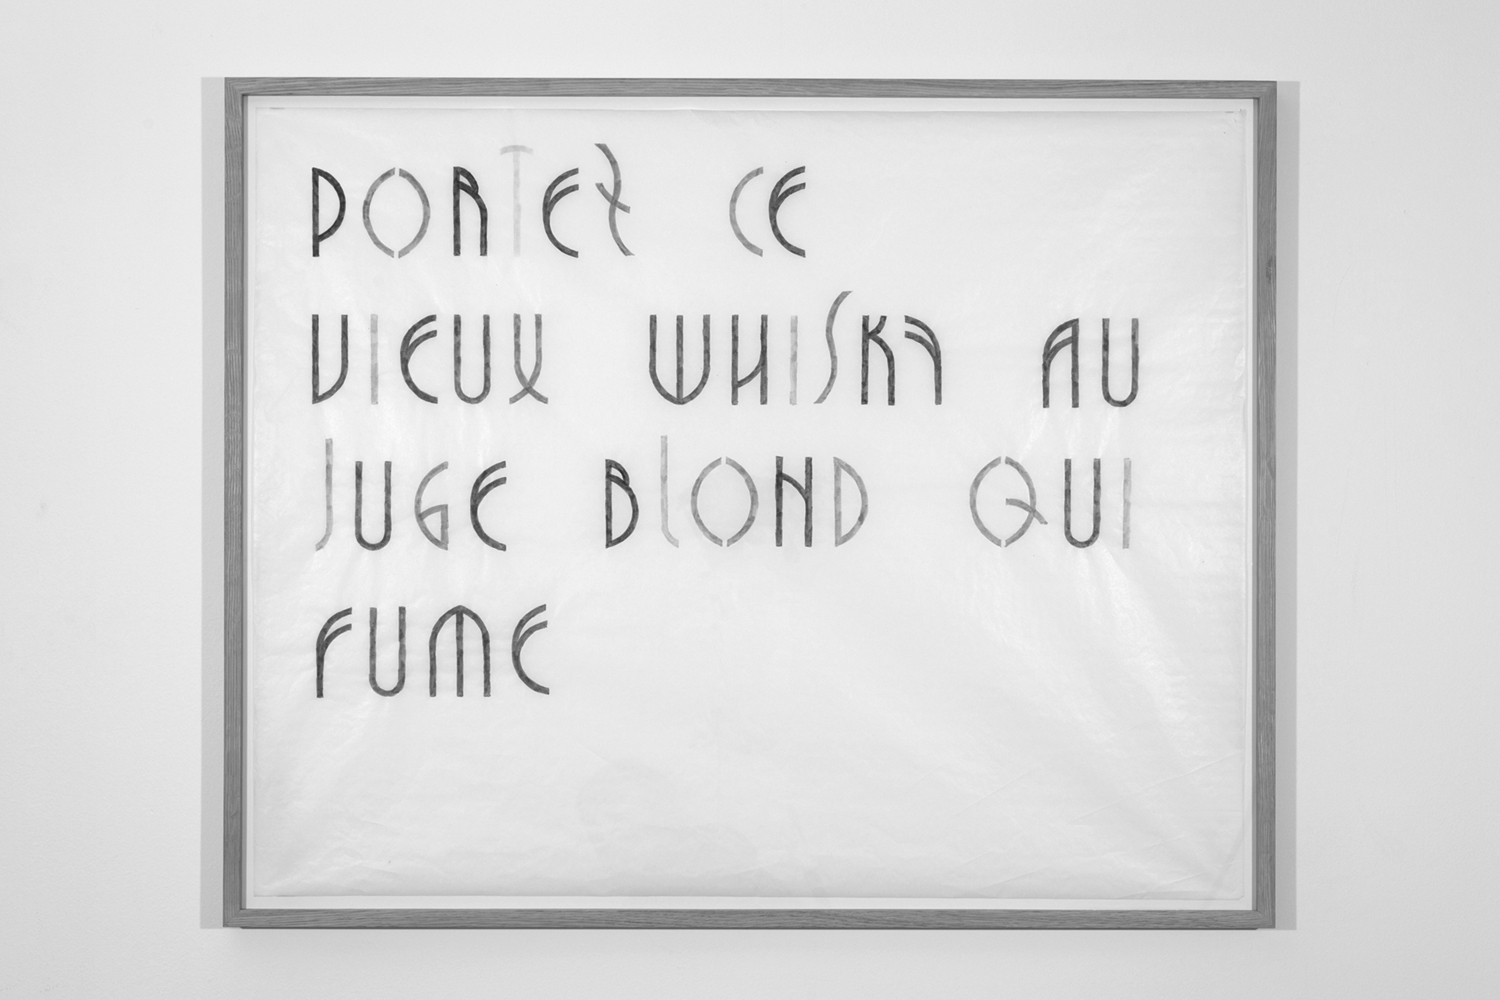 PORTEZ CE
VIEUX WHISKY AU
JUGE BLOND QUI
FUME